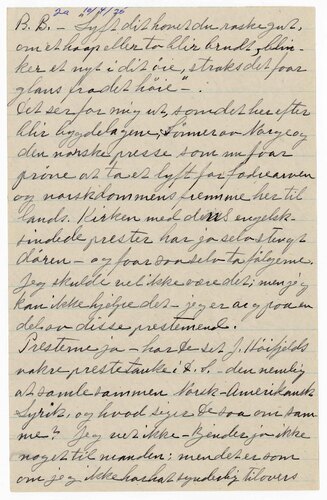 2a 10/7/25
B. B. – "Lyft dit hovet du raske gut,
om et haap eller to blir brudt, blin-
ker et nyt i dit öie, straks det faar
glans fra det höie" –.
Det ser for mig ut, som det her efter
blir bygdelagene, Sönner av Norge og
den norske presse som nu faar
pröve at ta et lyft for fædrearven
og norskdommens fremme her til
lands. Kirken med dens engelsk-
sindede prester har jo selv stengt
dören – og faar saa selv ta fölgerne.
Jeg skulde vel ikke være det; men jeg
kan ikke hjelpe det – jeg er arg paa en
del av disse prestemænd.
Presterne ja – har De set J. Höifjelds
vakre prestetanke i – den nemlig
at samle sammen Norsk-Amerikansk
Lyrik, og hvad siger De saa om sam-
me? Jeg vet ikke – kjender jo ikke
noget til manden; men det er som
om jeg ikke har hat synderlig tilovers